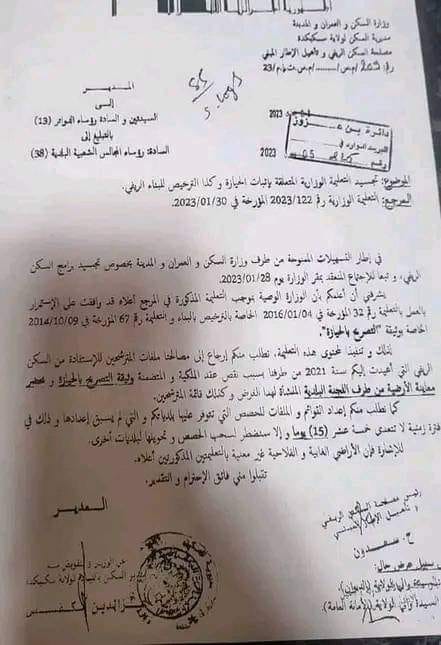 وزارة السكن و العمران و المدينة
مديرية السكن لولاية سكيكدة
مصلحة السكن الريفي و تأهيل الإطار المبني
رقم 205 /م.س/......../م.س.ت.إ.م/23
المدير
إلى
السيدتين و السادة رؤساء الدوائر (13)
بالتبليغ إلى
السادة: رؤساء المجالس الشعبية البلدية (38)
2023
دائرة بن عزوز
البريد الوارد في
رقم
2023
الموضوع: تجسيد التعليمة الوزارية المتعلقة بإثبات الحيازة و كذا الترخيص للبناء الريفي.
المرجع: التعليمة الوزارية رقم 2023/122 المؤرخة في 2023/01/30.
في إطار التسهيلات الممنوحة من طرف وزارة السكن و العمران و المدينة بخصوص تجسيد برامج السكن
الريفي، و تبعا للإجتماع المنعقد بمقر الوزارة يوم 2023/01/28.
يشرفني أن أعلمكم بأن الوزارة الوصية بموجب التعليمة المذكورة في المرجع أعلاه قد وافقت على الإستمرار
بالعمل بالتعليمة رقم 32 المؤرخة في 2016/01/04 الخاصة بالترخيص بالبناء و التعليمة رقم 67 المؤرخة في 2014/10/09
الخاصة بوثيقة "التصريح بالحيازة".
لذلك و تنفيذا لمحتوى هذه التعليمة، نطلب منكم إرجاع إلى مصالحنا ملفات المترشحين للإستفادة من السكن
الريفي التي أعيدت إليكم سنة 2021 من طرفنا بسبب نقص عقد الملكية و المتضمنة وثيقة التصريح بالحيازة و محضر
معاينة الأرضية من طرف اللجنة البلدية المنشأة لهذا الغرض و كذا قائمة المترشحين.
كما نطلب منكم إعداد القوائم و الملفات للحصص التي تتوفر عليها بلدياتكم و التي لم يسبق إعدادها و ذلك في
فترة زمنية لا تتعدى خمسة عشر (15) يوما و إلا سنضطر لسحب الحصص و تحويلها لبلديات أخرى.
للإشارة فإن الأراضي الغابية و الفلاحية غير معنية بالتعليمتين المذكورتين أعلاه.
تقبلوا مني فائق الإحترام و التقدير.
المدير
رئيس مصلحة السكن الريفي
و تأهيل الإطار المبني
عن الوزير و بتفويض منه
مدير السكن لولاية سكيكدة